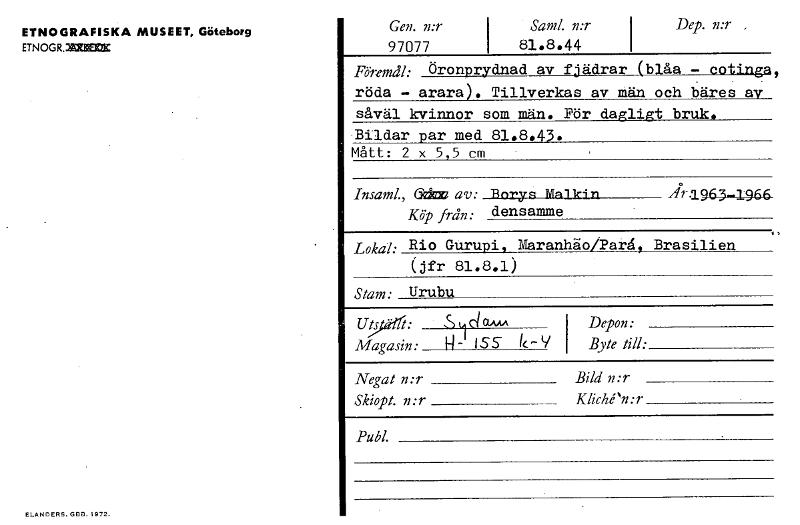 ETNOGRAFISKA MUSEET, Göteborg
ETNOGR.
Gen. n:r Saml. n:r Dep. n:r
97077 81.8.44
Föremål: Öronprydnad av fjädrar (blåa - cotinga,
röda - arara). Tillverkas av män och bäres av
såväl kvinnor som män. För dagligt bruk.
Bildar par med 81.8.43.
Mått: 2 x 5,5 cm
Insaml., Gåva av: Borys Malkin År 1963-1966
Köp från: densamme
Lokal: Rio Gurupi, Maranhão/Pará, Brasilien
(jfr 81.8.1)
Stam: Urubu
Utställt: Sydam Depon:
Magasin: H-155 k-4 Byte till:
Negat n:r Bild n:r
Skiopt. n:r Kliché n:r
Publ.
ELANDERS. GBG. 1972.